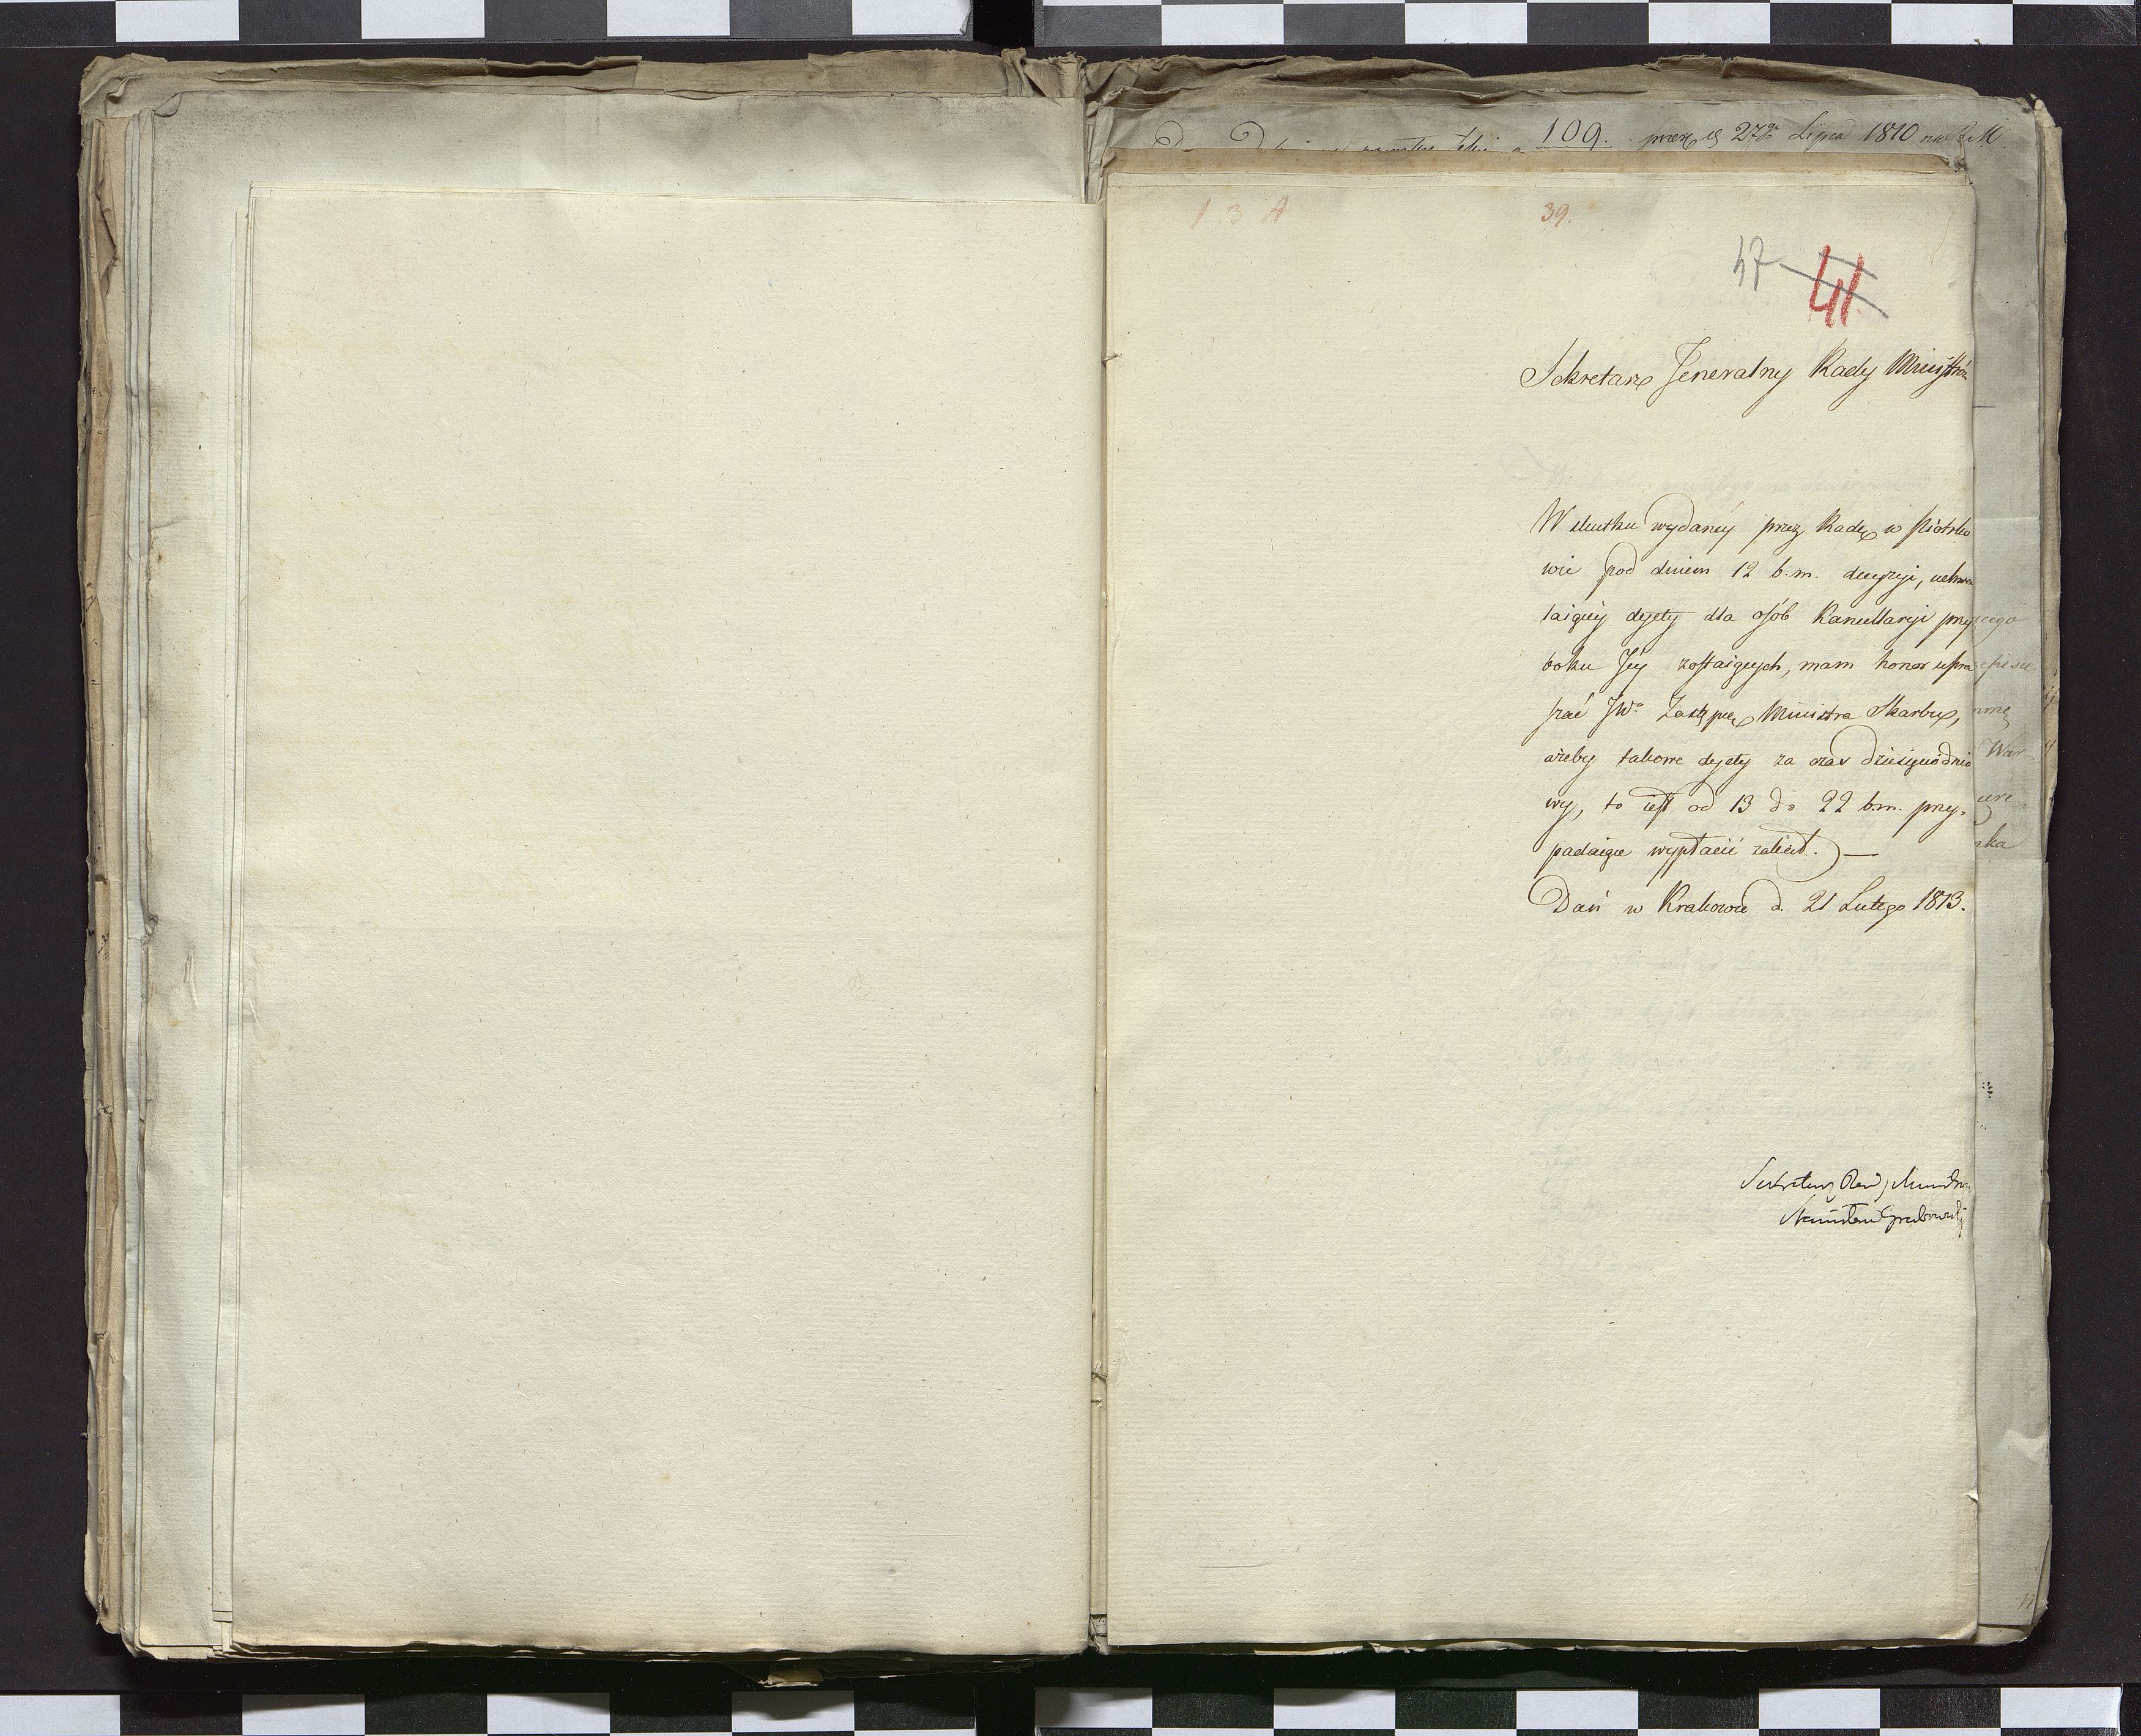 109. przez 27go Lipca 1810
134
39.
47 41
Sekretarz Jeneralny Rady Ministrów
W skutku wydanéy przez Radę w Piotrko
wie pod dniem 12 b.m. decyzyi, uchwa
laiącéy dyety dla osób Kancellaryi przy
boku Jéy zostaiących, mam honor upra
szać JWo Zastępcę Ministra Skarbu,
ażeby takowe dyety za czas dziesięciodnio
wy, to iest od 13 do 22 b.m. przy-
padaiące wypłacić zalecił. —
Dań w Krakowie d. 21 Lutego 1813.
Sekretarz Rady Ministrów
Stanisław Grabowski